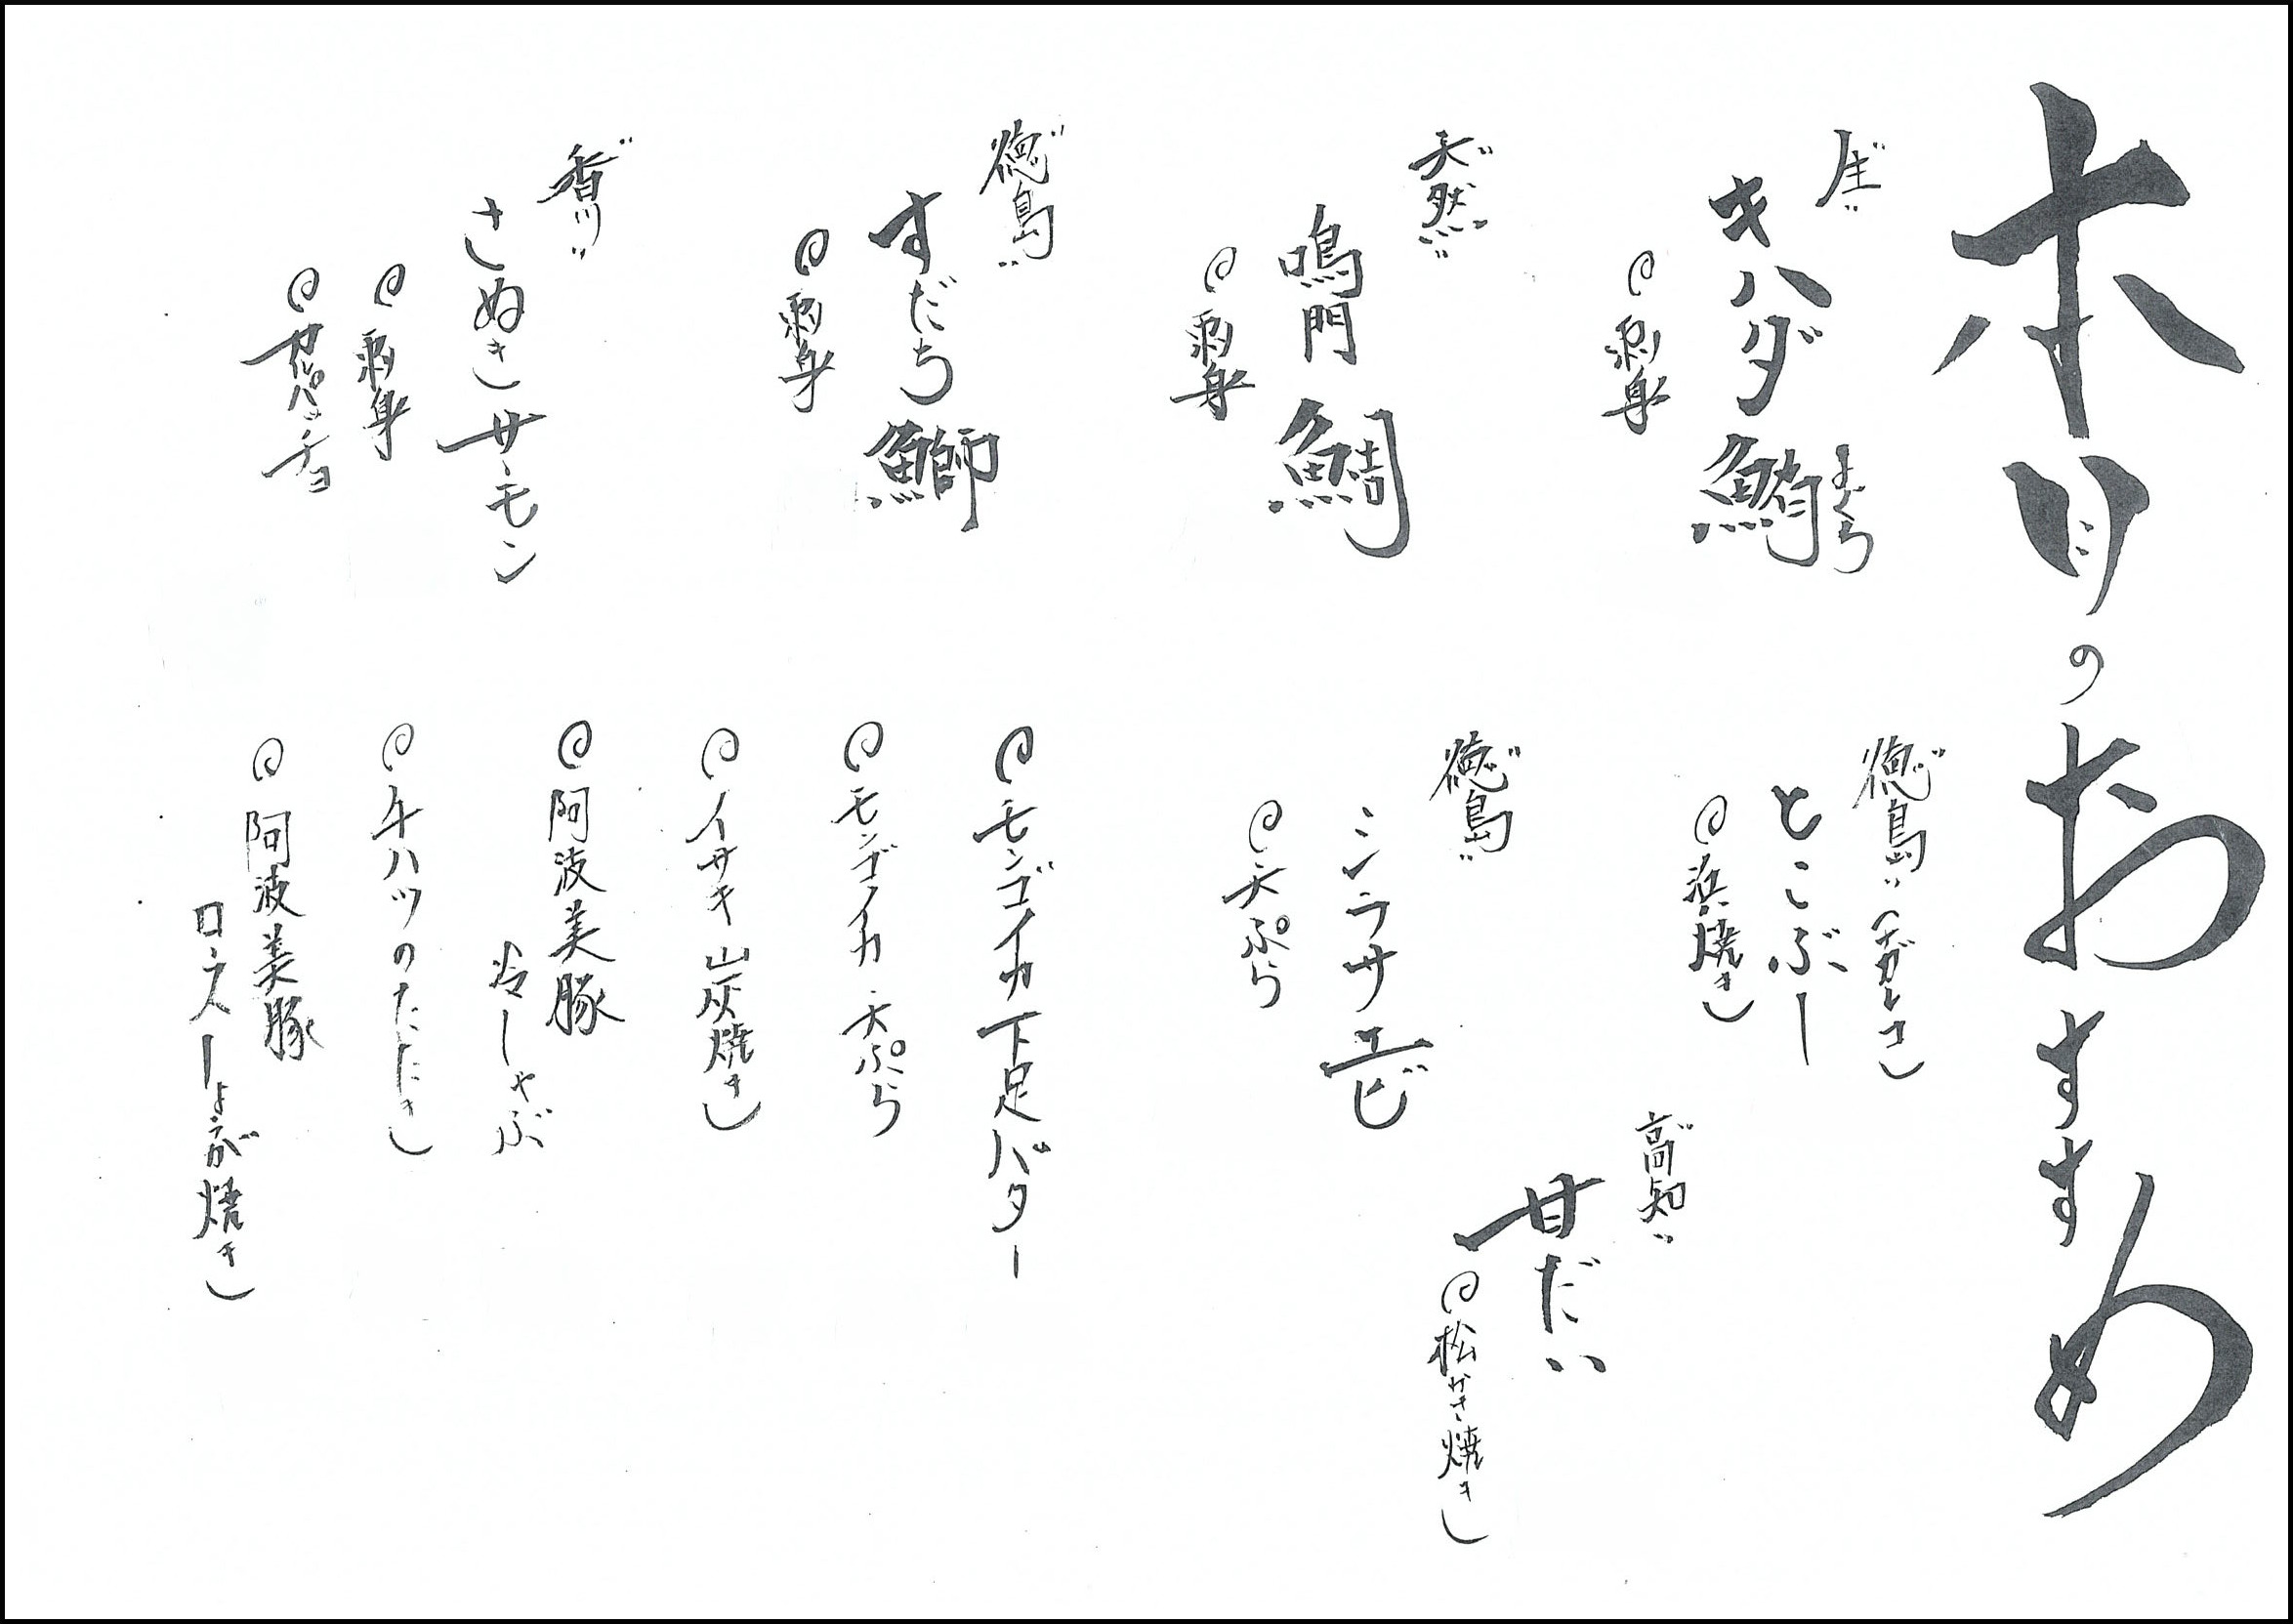 本日のおすすめ
"生"
キハダ鮪
まぐろ
刺身
"天然"
鳴門鯛
刺身
"徳島"
すだち鰤
刺身
"香川"
さぬきサーモン
刺身
カルパッチョ
"徳島"(ナガレコ)
とこぶし
浜焼き
"高知"
甘だい
松かさ焼き
"徳島"
シラサエビ
天ぷら
モンゴイカ下足バター
モンゴイカ天ぷら
イサキ炭焼き
阿波美豚
冷しゃぶ
牛ハツのたたき
阿波美豚
ロースしょうが焼き